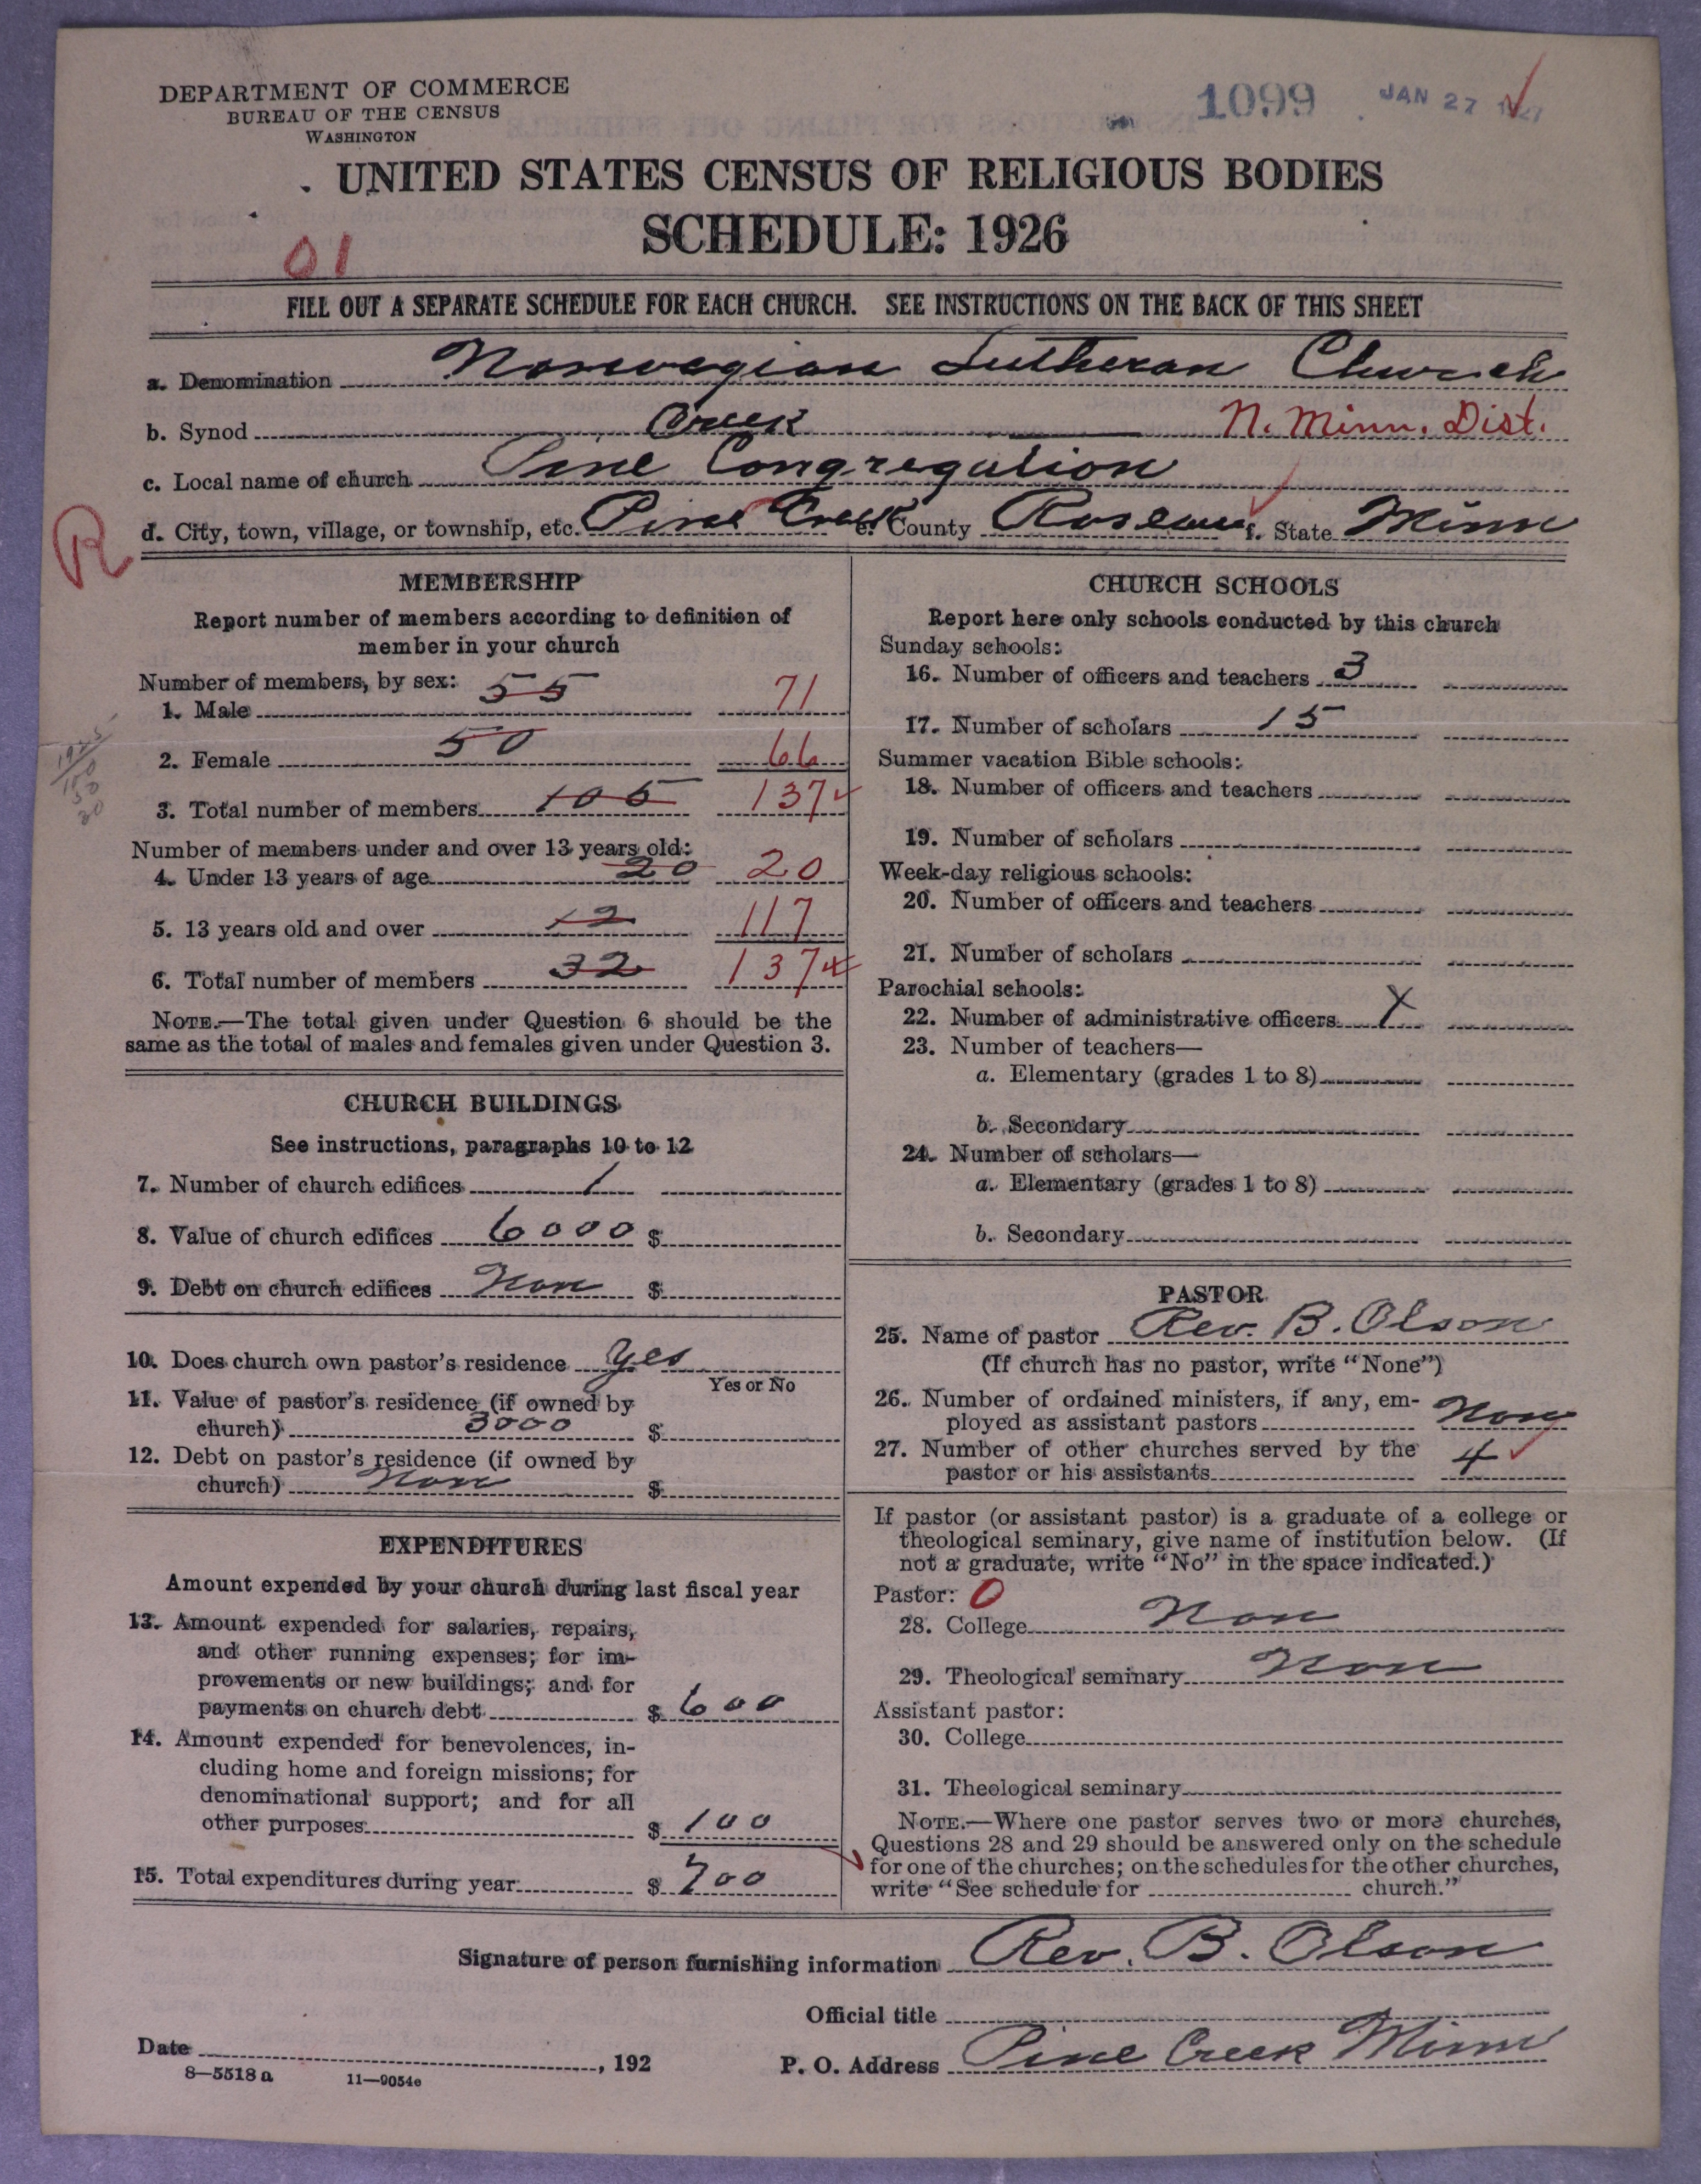 DEPARTMENT OF COMMERCE
BUREAU OF THE CENSUS
WASHINGTON
1099 JAN 27
UNITED STATES CENSUS OF RELIGIOUS BODIES
SCHEDULE: 1926
01
FILL OUT A SEPARATE SCHEDULE FOR EACH CHURCH. SEE INSTRUCTIONS ON THE BACK OF THIS SHEET
a. Denomination Norwegian Lutheran Church
b. Synod N. Minn. Dist.
Creek
c. Local name of church Pine Congregation
R
d. City, town, village, or township, etc. Pine Creek e. County Roseau f. State Minn
MEMBERSHIP
Report number of members according to definition of
member in your church
Number of members, by sex:
1. Male 55 71
2. Female 50 66
3. Total number of members 105 137
Number of members under and over 13 years old:
4. Under 13 years of age 20 20
5. 13 years old and over 12 117
6. Total number of members 32 137
NOTE.—The total given under Question 6 should be the
same as the total of males and females given under Question 3.
CHURCH BUILDINGS
See instructions, paragraphs 10 to 12
7. Number of church edifices 1
8. Value of church edifices 6000 $
9. Debt on church edifices Non $
10. Does church own pastor's residence Yes
Yes or No
11. Value of pastor's residence (if owned by
church) 3000 $
12. Debt on pastor's residence (if owned by
church) Non $
EXPENDITURES
Amount expended by your church during last fiscal year
13. Amount expended for salaries, repairs,
and other running expenses; for im-
provements or new buildings; and for
payments on church debt $ 600
14. Amount expended for benevolences, in-
cluding home and foreign missions; for
denominational support; and for all
other purposes $ 100
15. Total expenditures during year $ 700
CHURCH SCHOOLS
Report here only schools conducted by this church
Sunday schools:
16. Number of officers and teachers 3
17. Number of scholars 15
Summer vacation Bible schools:
18. Number of officers and teachers
19. Number of scholars
Week-day religious schools:
20. Number of officers and teachers
21. Number of scholars
Parochial schools:
22. Number of administrative officers X
23. Number of teachers—
a. Elementary (grades 1 to 8)
b. Secondary
24. Number of scholars—
a. Elementary (grades 1 to 8)
b. Secondary
PASTOR
25. Name of pastor Rev. B. Olson
(If church has no pastor, write "None")
26. Number of ordained ministers, if any, em-
ployed as assistant pastors Non
27. Number of other churches served by the
pastor or his assistants 4
If pastor (or assistant pastor) is a graduate of a college or
theological seminary, give name of institution below. (If
not a graduate, write "No" in the space indicated.)
Pastor: 0
28. College Non
29. Theological seminary Non
Assistant pastor:
30. College
31. Theological seminary
NOTE.—Where one pastor serves two or more churches,
Questions 28 and 29 should be answered only on the schedule
for one of the churches; on the schedules for the other churches,
write "See schedule for church."
Signature of person furnishing information Rev. B. Olson
Official title
Date , 192
P. O. Address Pine Creek Minn
8—5518a 11—9054e